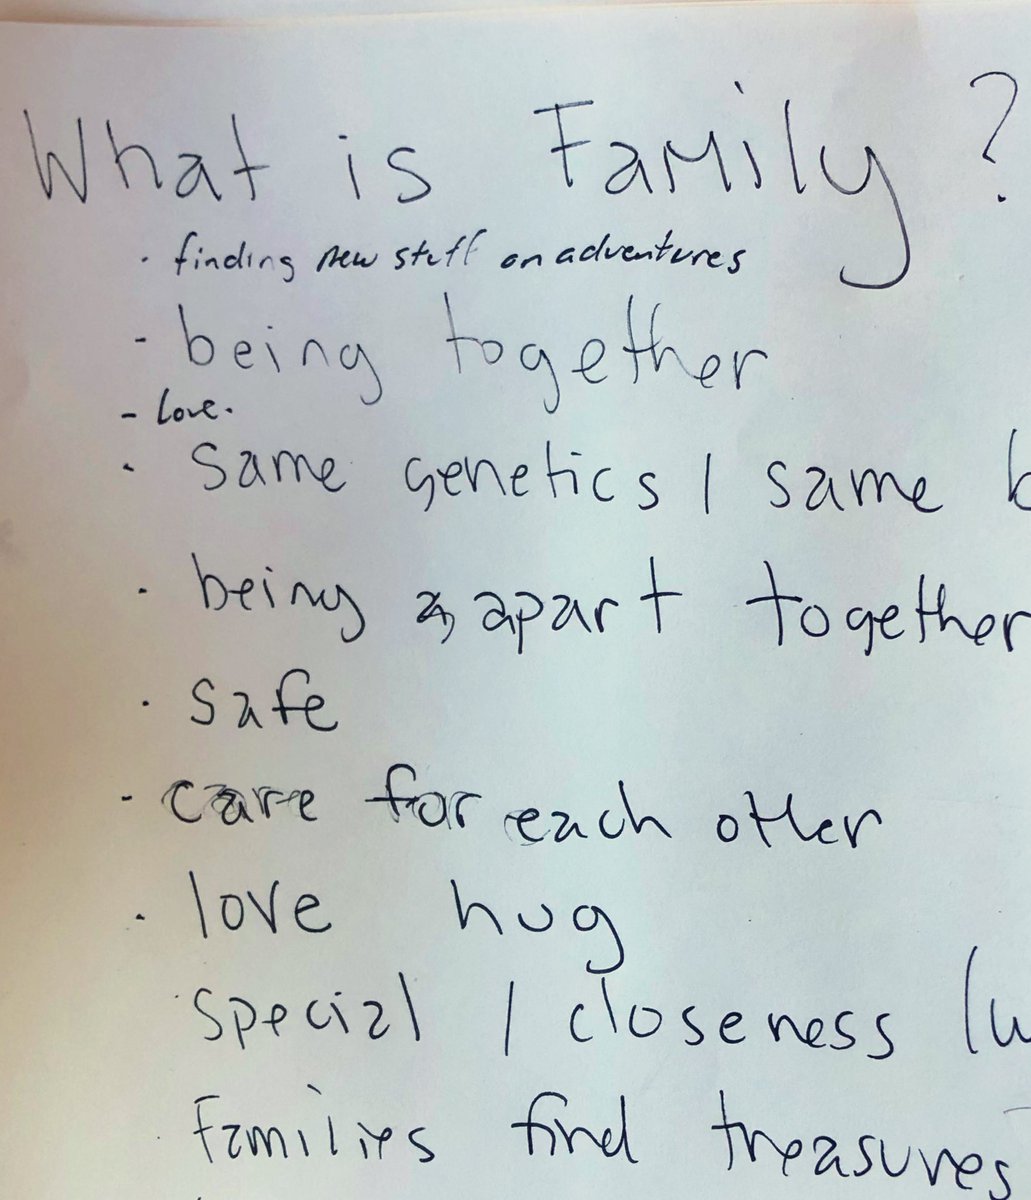 What is Family?
· finding new stuff on adventures
- being together
- Love.
· Same genetics / same
· being apart together
· safe
- care for each other
· love hug
· special / closeness
· Families find treasures